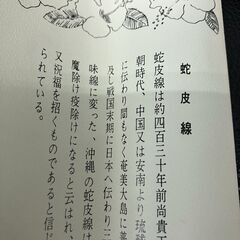 蛇皮線
蛇皮線は約四百三十年前尚貴王
朝時代、中国又は安南より琉球
に伝わり間もなく奄美大島に普
及し戦国末期に日本へ伝わり三
味線に変った、沖縄の蛇皮線は
魔除け疫除けになると云はれ、
又祝福を招くものであると信じ
られている。